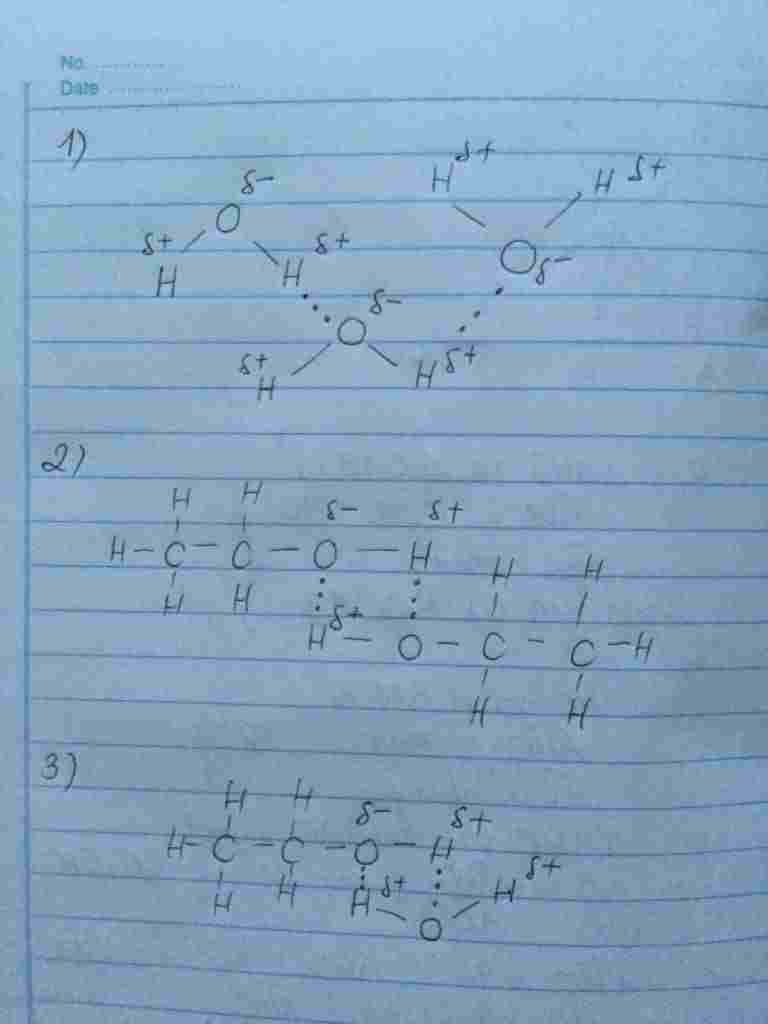 No. ...............
Date ...........................
1)
H δ+ H δ+
δ- O
δ+ H H δ+ O δ-
O δ-
δ+ H H δ+
2)
H H δ- δ+
H - C - C - O - H H H
H H
H δ+ - O - C - C - H
H H
3)
H H δ- δ+
H - C - C - O - H
H H H δ+ H δ+
O